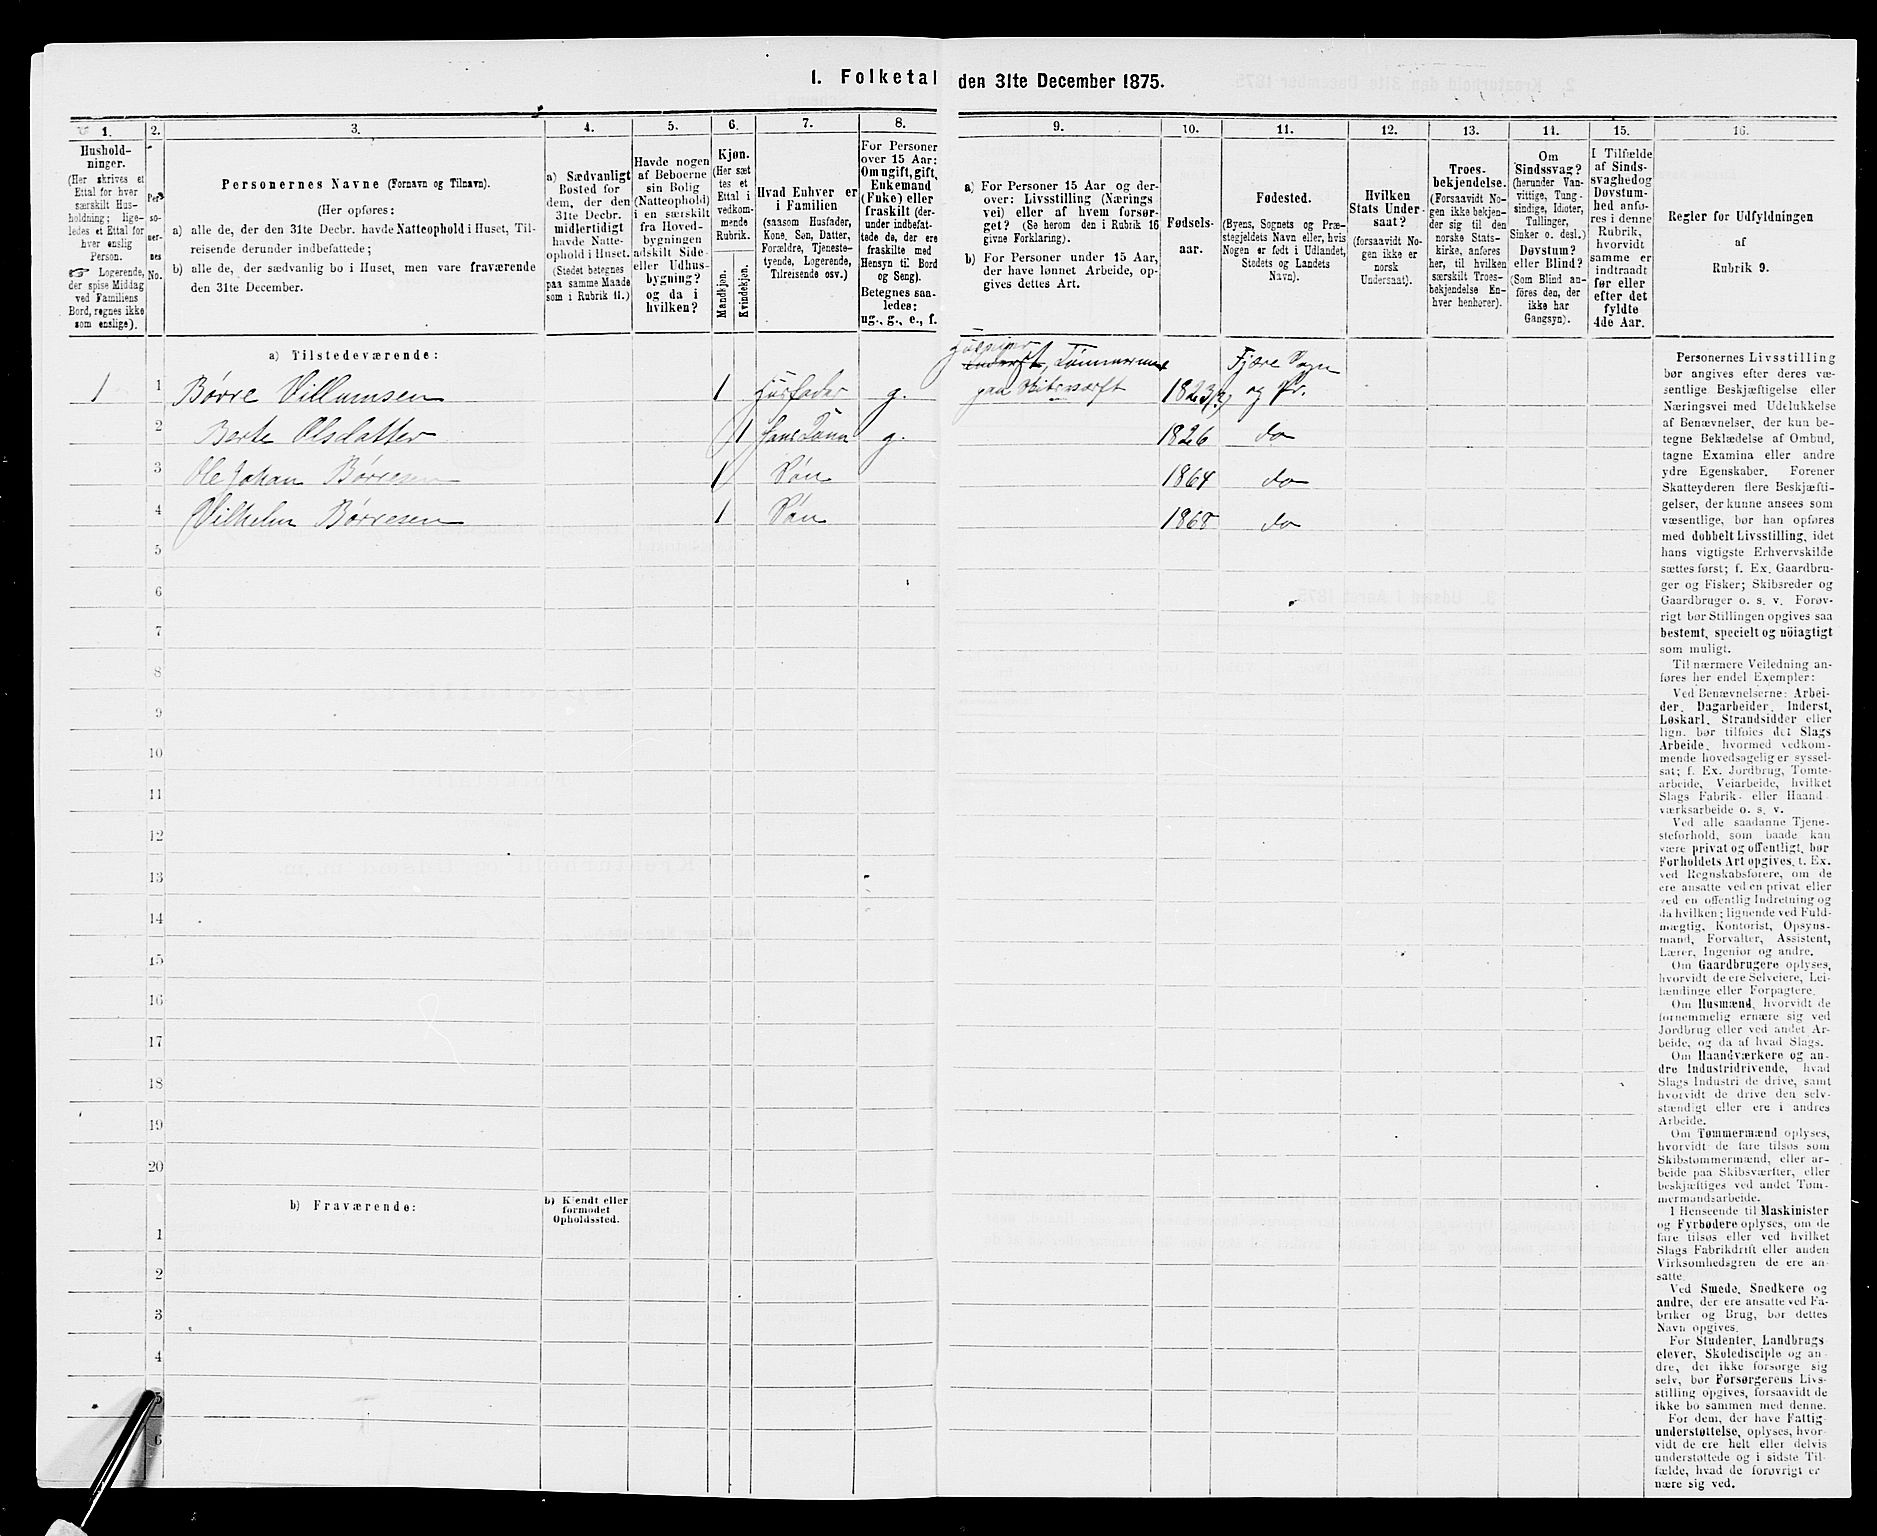 1. Folketal den 31te December 1875.
1.
2.
3.
4.
5.
6.
7.
8.
9.
10.
11.
12.
13.
14.
15.
16.
Hushold-
ninger.
(Her skrives et
Ettal for hver
særskilt Hus-
holdning; lige-
ledes et Ettal for
hver enslig
Person.
☞ Logerende,
der spise Middag
ved Familiens
Bord, regnes ikke
som enslige).
Per-
so-
ner-
nes
No.
Personernes Navne (Fornavn og Tilnavn).
(Her opføres:
a) alle de, der den 31te Decbr. havde Natteophold i Huset, Til-
reisende derunder indbefattede;
b) alle de, der sædvanlig bo i Huset, men vare fraværende
den 31te December.
a) Sædvanligt
Bosted for
dem, der den
31te Decbr.
midlertidigt
havde Natte-
ophold i Huset.
(Stedet betegnes
paa samme Maade
som i Rubrik 11.)
Havde nogen
af Beboerne
sin Bolig
(Natteophold)
i en særskilt
fra Hoved-
bygningen
adskilt Side-
eller Udhus-
bygning?
og da i
hvilken?
Kjøn.
(Her sæt-
tes et
Ettal i
vedkom-
mende
Rubrik.
Mandkjøn.
Kvindekjøn.
Hvad Enhver er
i Familien
(saasom Husfader,
Kone, Søn, Datter,
Forældre, Tjeneste-
tyende, Logerende,
Tilreisende osv.)
For Personer
over 15 Aar:
Om ugift, gift,
Enkemand
(Fuke) eller
fraskilt (der-
under indbefat-
tede de, der ere
fraskilte med
Hensyn til Bord
og Seng).
Betegnes saa-
ledes:
ug., g., e., f.
a) For Personer 15 Aar og der-
over: Livsstilling (Nærings-
vei) eller af hvem forsør-
get? (Se herom den i Rubrik 16
givne Forklaring).
b) For Personer under 15 Aar,
der have lønnet Arbeide, op-
gives dettes Art.
Fødsels-
aar.
Fødested.
(Byens, Sognets og Præ-
stegjeldets Navn eller, hvis
Nogen er født i Udlandet,
Stedets og Landets
Navn).
Hvilken
Stats Under-
saat?
(forsaavidt No-
gen ikke er
norsk
Undersaat).
Troes-
bekjendelse.
(Forsaavidt No-
gen ikke bekjen-
der sig til den
norske Stats-
kirke, anføres
her, til hvilken
særskilt Troes-
bekjendelse En-
hver henhører).
Om
Sindssvag?
(herunder Van-
vittige, Tung-
sindige, Idioter,
Tullinger,
Sinker o. desl.)
Døvstum?
eller Blind?
(Som Blind an-
føres den, der
ikke har
Gangsyn).
I Tilfælde
af Sinds-
svaghed og
Døvstum-
hed anfø-
res i denne
Rubrik,
hvorvidt
samme er
indtraadt
før eller
efter det
fyldte
4de Aar.
Regler for Udfyldningen
af
Rubrik 9.
a) Tilstedeværende:
1 1 Børre Villumsen 1 Husfader g. Inderst, Tømmermand paa Skibsværft 1823 Fjære Sogn og Pr.
2 Berte Olsdatter 1 hans Kone g. 1826 do
3 Ole Johan Børresen 1 Søn 1864 do
4 Vilhelm Børresen 1 Søn 1868 do
5
6
7
8
9
10
11
12
13
14
15
16
17
18
19
20
b) Fraværende:
b) Kjendt eller
formodet
Opholdssted.
1
2
3
4
5
6
Personernes Livsstilling
bør angives efter deres væ-
sentlige Beskjæftigelse eller
Næringsvei med Udelukkelse
af Benævnelser, der kun be-
tegne Beklædelse af Ombud,
tagne Examina eller andre
ydre Egenskaber. Forener
Skatteyderen flere Beskjæfti-
gelser, der kunne ansees som
væsentlige, bør han opføres
med dobbelt Livsstilling, idet
hans vigtigste Erhvervskilde
sættes først; f. Ex. Gaardbru-
ger og Fisker; Skibsreder og
Gaardbruger o. s. v. Forøv-
rigt bør Stillingen opgives saa
bestemt, specielt og nöiagtigt
som muligt.
Til nærmere Veiledning an-
føres her endel Exempler:
Ved Benævnelserne: Arbei-
der, Dagarbeider, Inderst,
Løskarl, Strandsidder eller
lign. bør tilføies det Slags
Arbeide, hvormed vedkom-
mende hovedsagelig er syssel-
sat; f. Ex. Jordbrug, Tomte-
arbeide, Veiarbeide, hvilket
Slags Fabrik- eller Haand-
værksarbeide o. s. v.
Ved alle saadanne Tjene-
steforhold, som baade kan
være privat og offentligt, bør
Forholdets Art opgives, t. Ex.
ved Regnskabsførere, om de
ere ansatte ved en privat eller
ved en offentlig Indretning og
da hvilken; lignende ved Fuld-
mægtig, Kontorist, Opsyns-
mand, Forvalter, Assistent,
Lærer, Ingeniør og andre.
Om Gaardbrugere oplyses,
hvorvidt de ere Selveiere, Lei-
lændinge eller Forpagtere.
Om Husmænd, hvorvidt de
fornemmelig ernære sig ved
Jordbrug eller ved andet Ar-
beide, og da af hvad Slags.
Om Haandværkere og an-
dre Industridrivende, hvad
Slags Industri de drive, samt
hvorvidt de drive den selv-
stændigt eller ere i andres
Arbeide.
Om Tømmermænd oplyses,
hvorvidt de fare tilsøs som
Skibstømmermænd, eller ar-
beide paa Skibsværfter, eller
beskjæftiges ved andet Tøm-
mermandsarbeide.
I Henseende til Maskinister
og Fyrbødere oplyses, om de
fare tilsøs eller ved hvilket
Slags Fabrikdrift eller anden
Virksomhedsgren de ere an-
satte.
Ved Smede, Snedkere og
andre, der ere ansatte ved Fa-
briker og Brug, bør dettes
Navn opgives.
For Studenter, Landbrugs-
elever, Skoledisciple og an-
dre, der ikke forsørge sig
selv, bør Forsørgerens Livs-
stilling opgives, forsaavidt de
ikke bo sammen med denne.
For dem, der have Fattig-
understøttelse, oplyses, hvor-
vidt de ere helt eller delvis
understøttede og i sidste Til-
fælde, hvad de forøvrigt er-
nære sig ved.